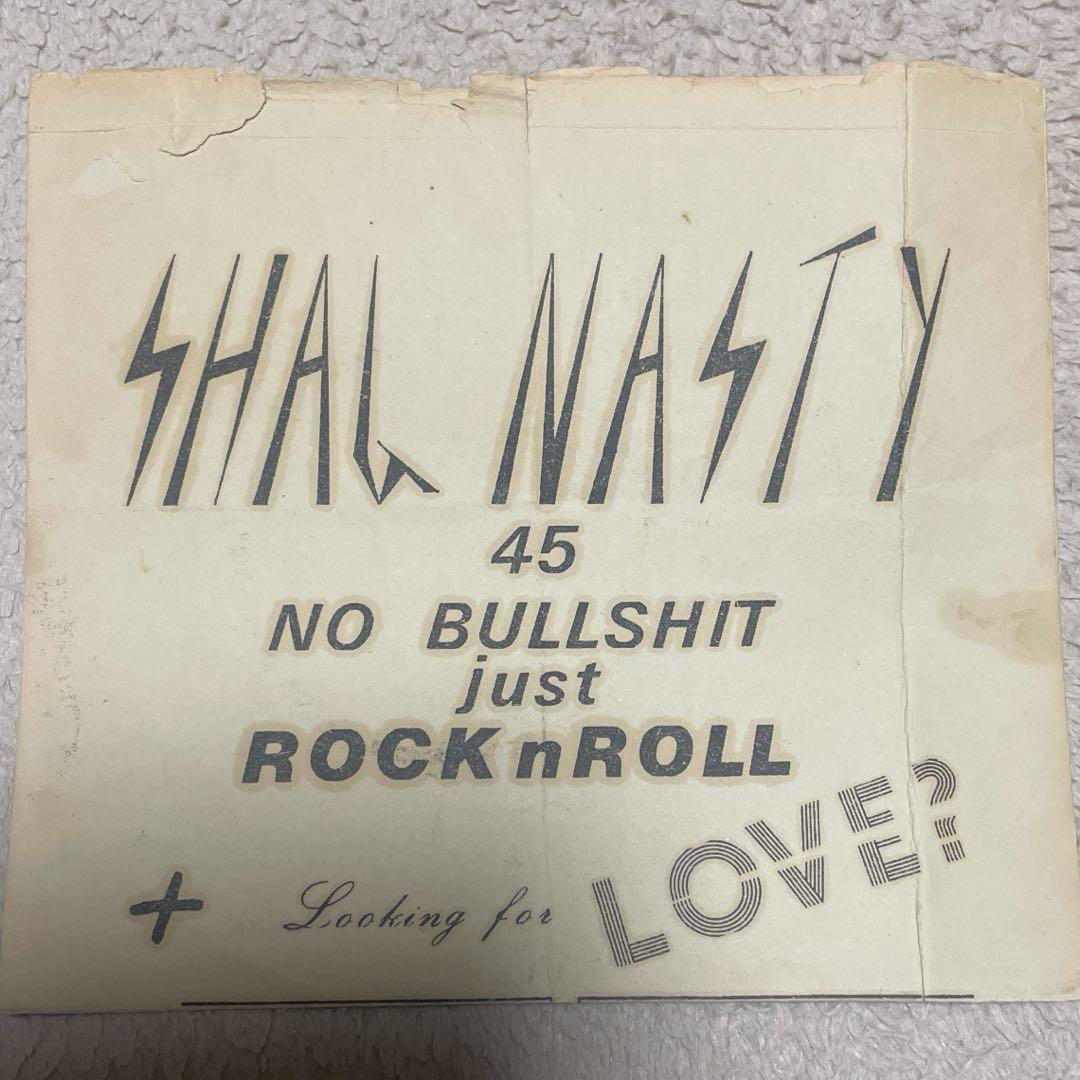 SHAG NASTY
45
NO BULLSHIT
just
ROCK n ROLL
+ Looking for LOVE?